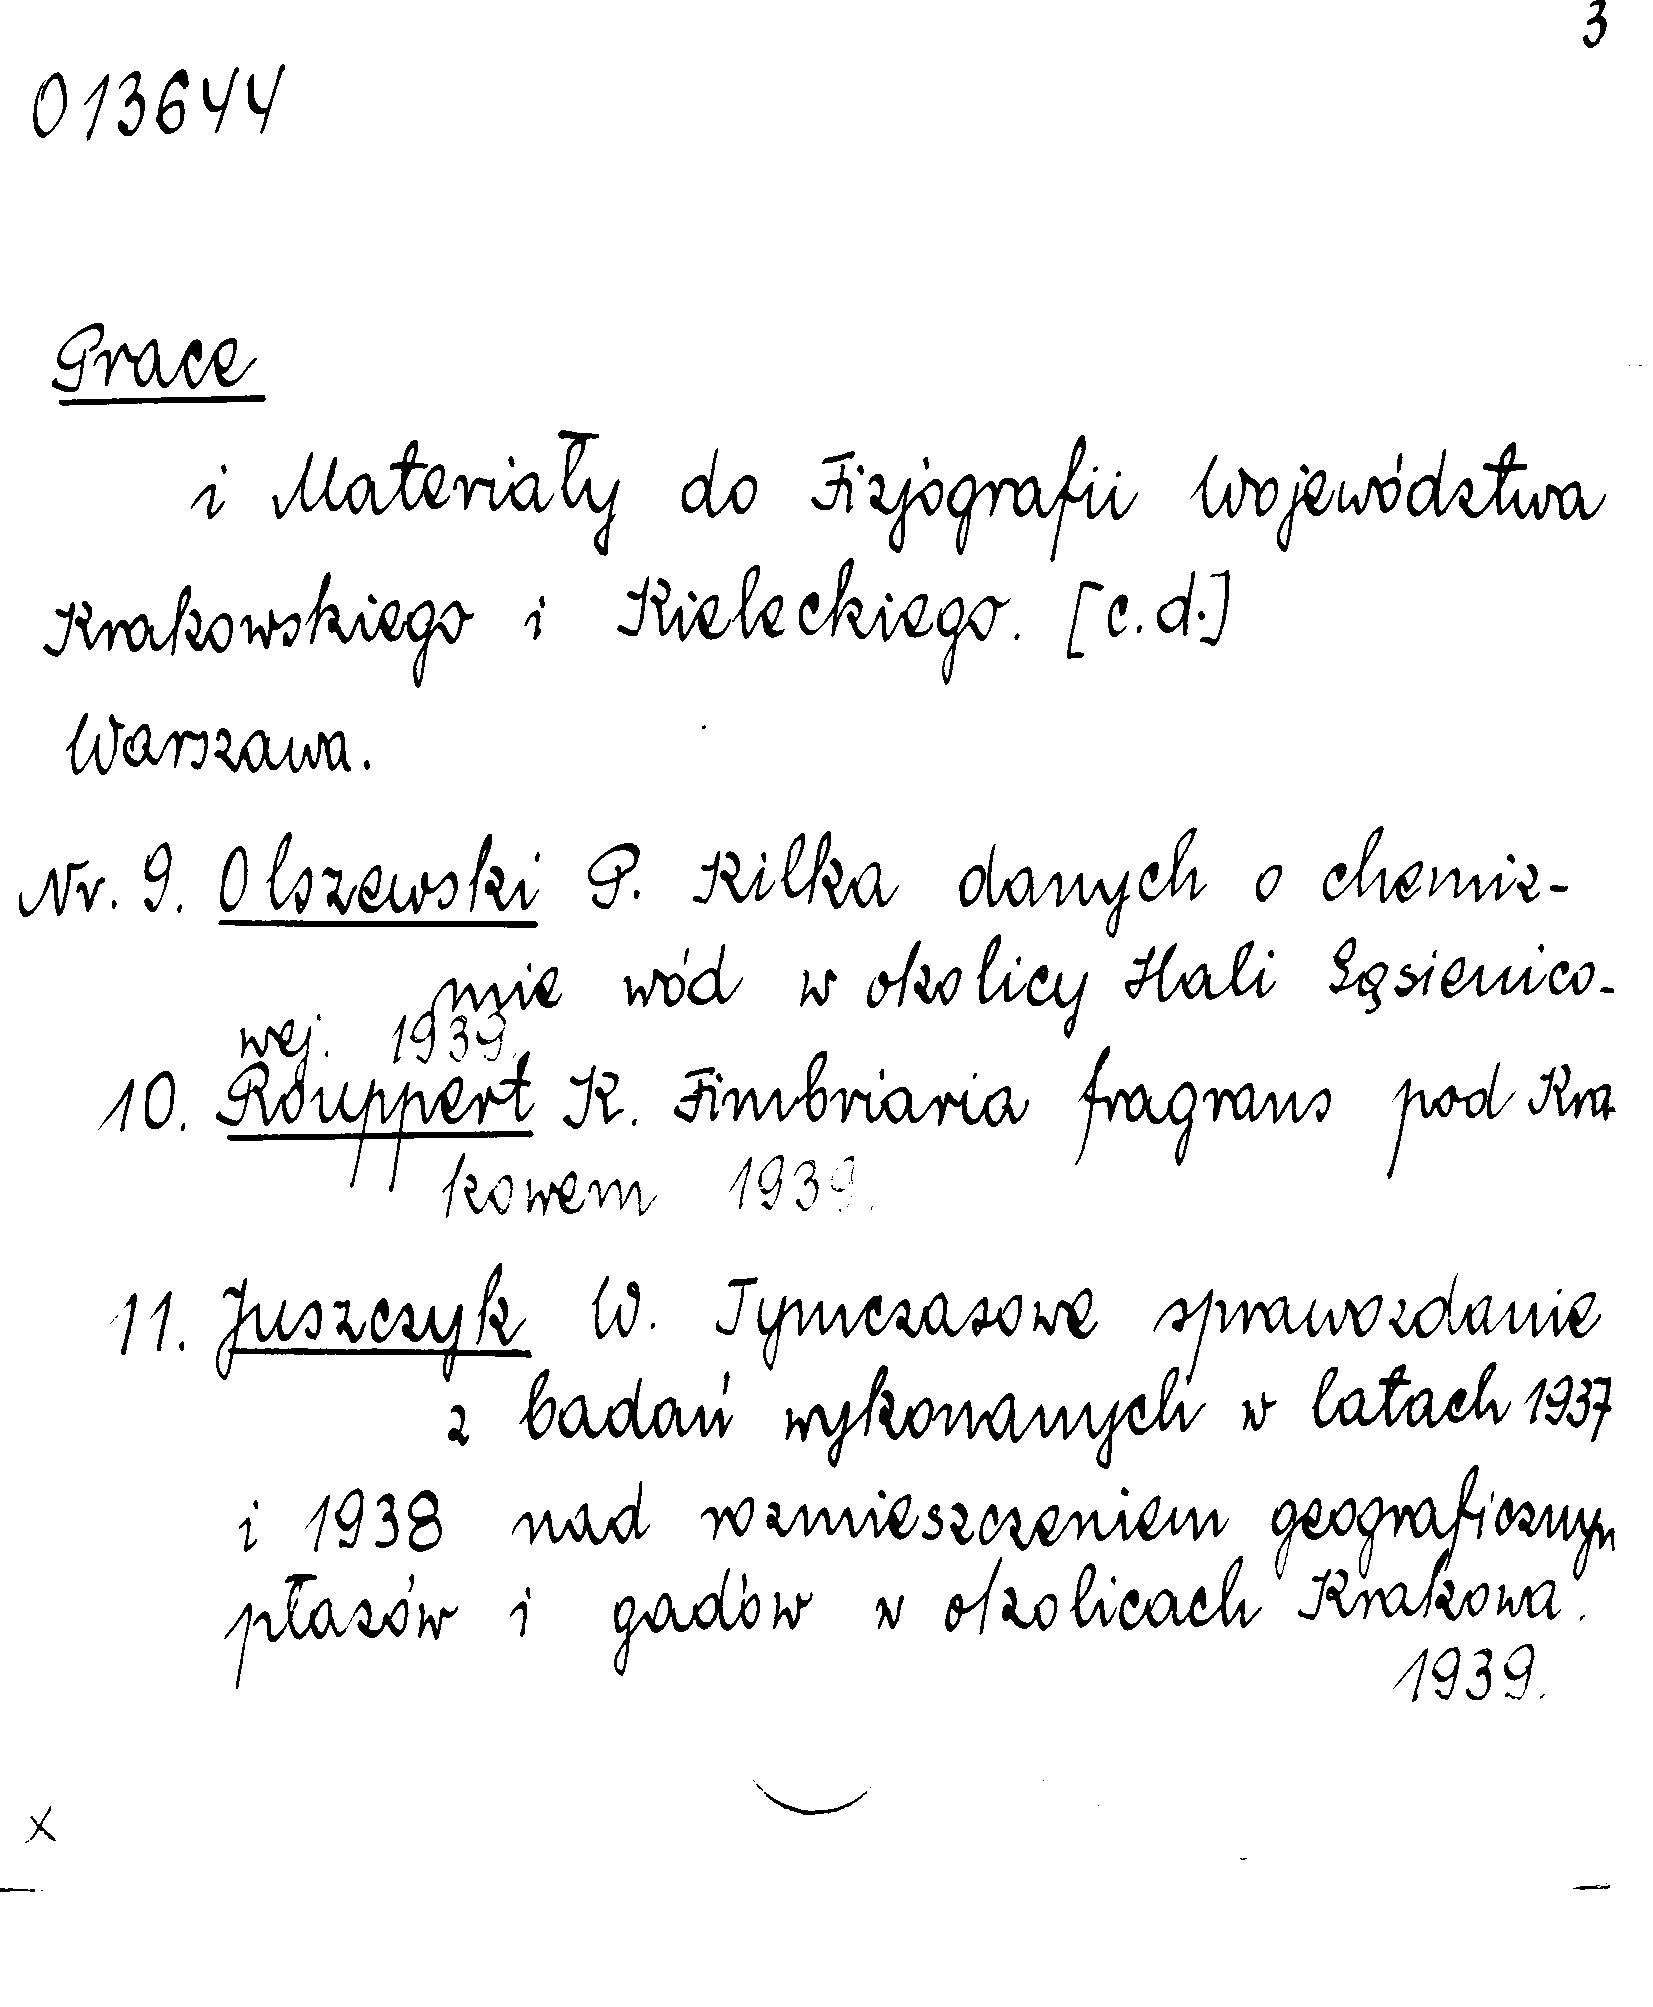 3
013644
Prace
i Materiały do Fizjografii Województwa
Krakowskiego i Kieleckiego. [c.d.]
Warszawa.
Nr. 9. Olszewski P. Kilka danych o chemiz-
mie wód w okolicy Hali Gąsienico-
wej. 1939.
10. Rouppert K. Fimbriaria fragrans pod Kra-
kowem 1939.
11. Juszczyk W. Tymczasowe sprawozdanie
z badań wykonanych w latach 1937
i 1938 nad rozmieszczeniem geograficznym
płazów i gadów w okolicach Krakowa.
1939.
x